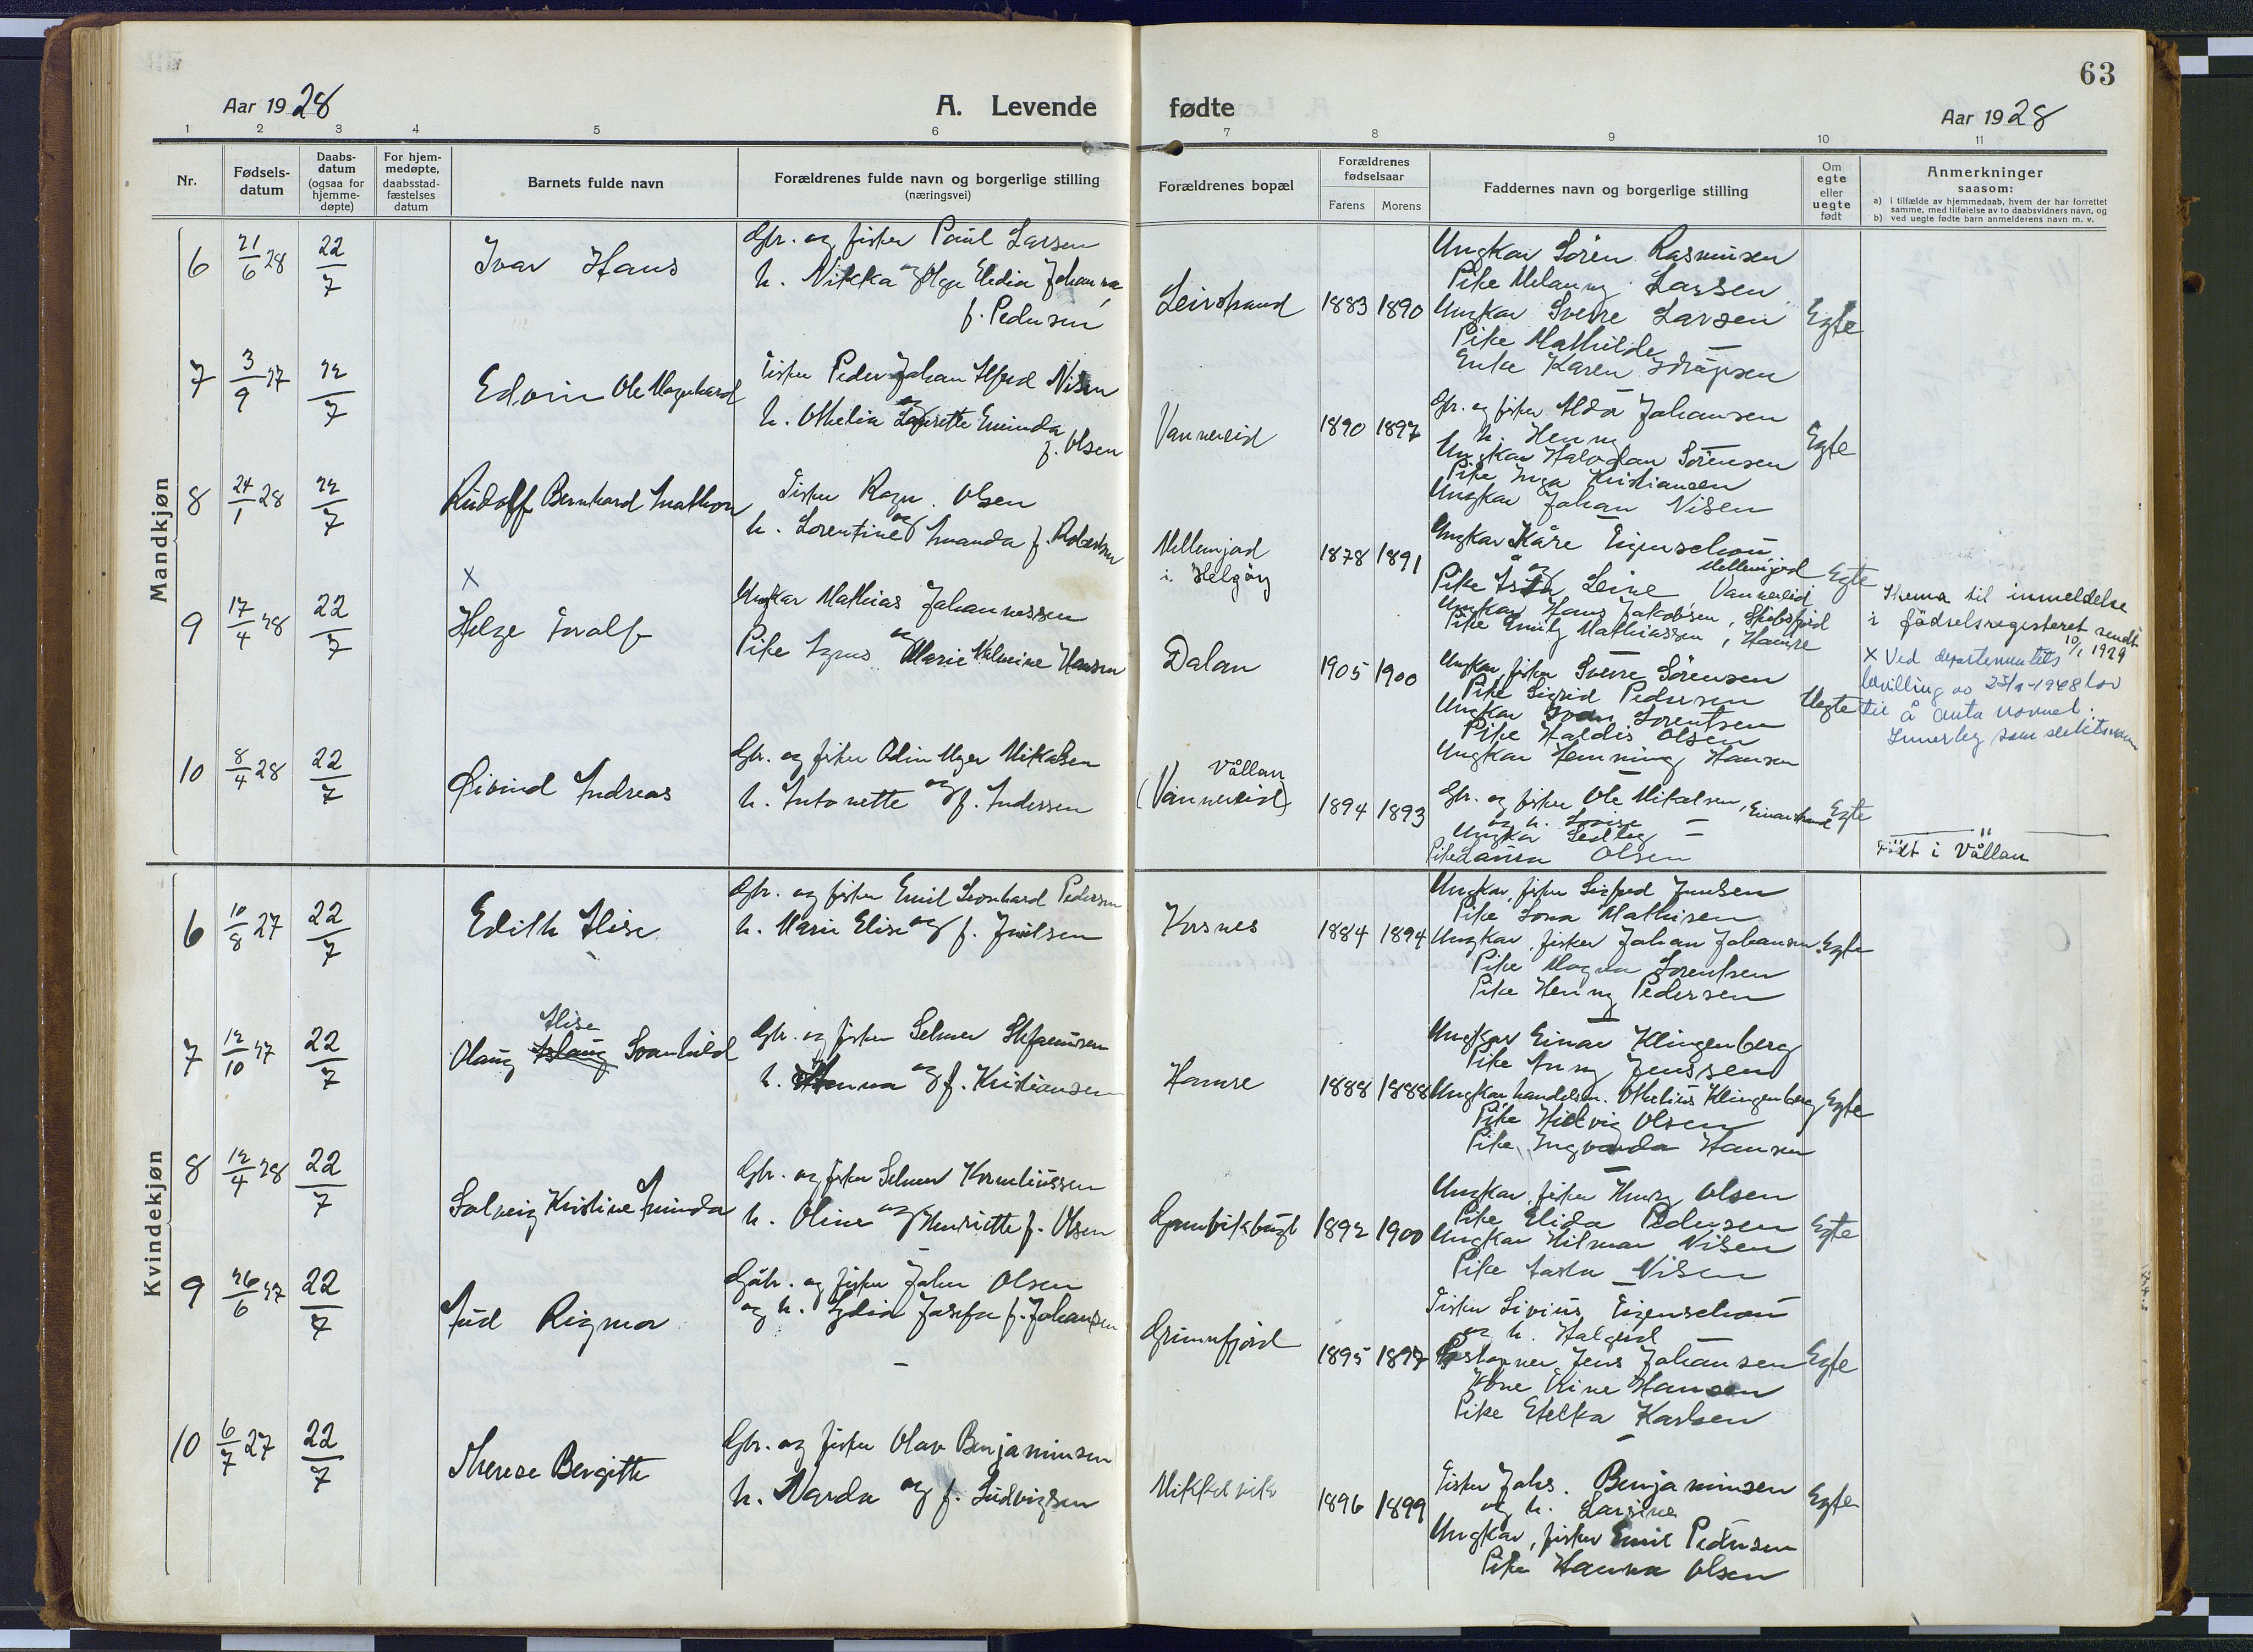 63
Aar 1928
A. Levende fødte
Aar 1928
1 2 3 4 5 6 7 8 9 10 11
Nr.
Fødsels-
datum
Daabs-
datum
(ogsaa for
hjemme-
døpte)
For hjem-
medøpte,
daabsstad-
fæstelses
datum
Barnets fulde navn
Forældrenes fulde navn og borgerlige stilling
(næringsvei)
Forældrenes bopæl
Forældrenes
fødselsaar
Farens Morens
Faddernes navn og borgerlige stilling
Om
egte
eller
uegte
født
Anmerkninger
saasom:
a) i tilfælde av hjemmedaab, hvem der har forrettet
samme, med tilføielse av to daabsvidners navn, og
b) ved uegte fødte barn anmelderens navn m. v.
Mandkjøn
6 21/6 28 22/7 Ivar Hans
Gbr. og fisker Paul Larsen
og
h. Nikka Olga Elidia Johanna
f. Pedersen
Leirstrand 1883 1890
Ungkar Sören Rasmusen
Pike Melanny Larsen
Ungkar Sverre Larsen
Pike Mathilde —
Enke Karen
Egte
7 3/9 27 22/7 Edvin Ole Magnhard
Fisker Peder Johan Alfred Nilsen
og
h. Othelia Laurette Eminda
f. Olsen
Vannereid 1890 1897
Gbr. og fisker Johansen
h. Henny
Ungkar Halvdan Sörensen
Pike Inga Kristiansen
Ungkar Johan Nilsen
Egte
8 24/1 28 22/7 Rudolf Bernhard
Fisker Ragn. Olsen
og
h. Lorentine Amanda f. Robertsen
Mellemjord
i Helgöy
1878 1891
Ungkar Kåre Eigenschou
Mellemjord
Pike Leine Vannereid
Ungkar Hans Jakobsen, Skibsfjord
Pike Emily Mathiassen, Hamre
Egte
Skema til innmeldelse
i födselsregisteret sendt
10/1 1929
x
9 17/4 28 22/7 Helge Toralf
Ungkar Mathias Johannessen
og
Pike Agnes Marie Hansen
Dalan 1905 1900
Ungkar, fisker Sverre Sörensen
Pike Sigrid Pedersen
Ungkar Lorentsen
Pike Haldis Olsen
Ungkar Henning Hansen
Uegte
x Ved departementets
bevilling av 1948 lov
til å anta navnet
som slektsnavn
10 8/4 28 22/7 Öivind Andreas
Gbr. og fisker Odin Mikalsen
og
h. Antonette f. Andersen
Vållan
(Vannereid)
1894 1893
Gbr. og fisker Ole Mikalsen, Einarstrand
og h. Lovise —
Ungkar Sedley —
Pike Laura Olsen
Egte
— " —
Född i Vållan
Kvindekjøn
6 10/8 27 22/7 Edith Alise
Gbr. og fisker Emil Leonhard Pedersen
og
h. Marie Elise f. Juulsen
Kvsnes 1884 1894
Ungkar, fisker Sigfred Juulsen
Pike Lona Mathisen
Ungkar, fisker Johan Johansen
Pike Magna Lorentsen
Pike Henny Pedersen
Egte
7 12/10 27 22/7 Alise
Olaug Aslaug Svanhild
Gbr. og fisker Selmer Stefanussen
og
h. Anna f. Kristiansen
Hamre 1888 1888
Ungkar Einar Klingenberg
Pike Anny Jenssen
Ungkar, handelsm. Othelius Klingenberg
Pike Hedvig Olsen
Pike Ingvarda Hansen
Egte
8 12/4 28 22/7 Solveig Kristine Aminda
Gbr. og fisker Selmer Korneliussen
og
h. Oline Henriette f. Olsen
Grunvikbugt 1892 1900
Ungkar, fisker Henry Olsen
Pike Elida Pedersen
Ungkar Hilmar Nilsen
Pike Asta Nilsen
Egte
9 26/6 27 22/7 Aud Rigmor
Gbr. og fisker John Olsen
og h. Lydia Josefa f. Johansen
Grunnfjord 1895 1897
Fisker Livius Eigenschou
og h. Halgerd —
Jens Johansen
Kone Trine Hansen
Pike Etelka Karlsen
Egte
10 6/7 27 22/7 Therese Bergitte
Gbr. og fisker Olav Benjaminsen
og
h. Narda f. Ludvigsen
Mikkelvik 1896 1899
Fisker Johs. Benjaminsen
og h. Larsine
Ungkar, fisker Emil Pedersen
Pike Hanna Olsen
Egte